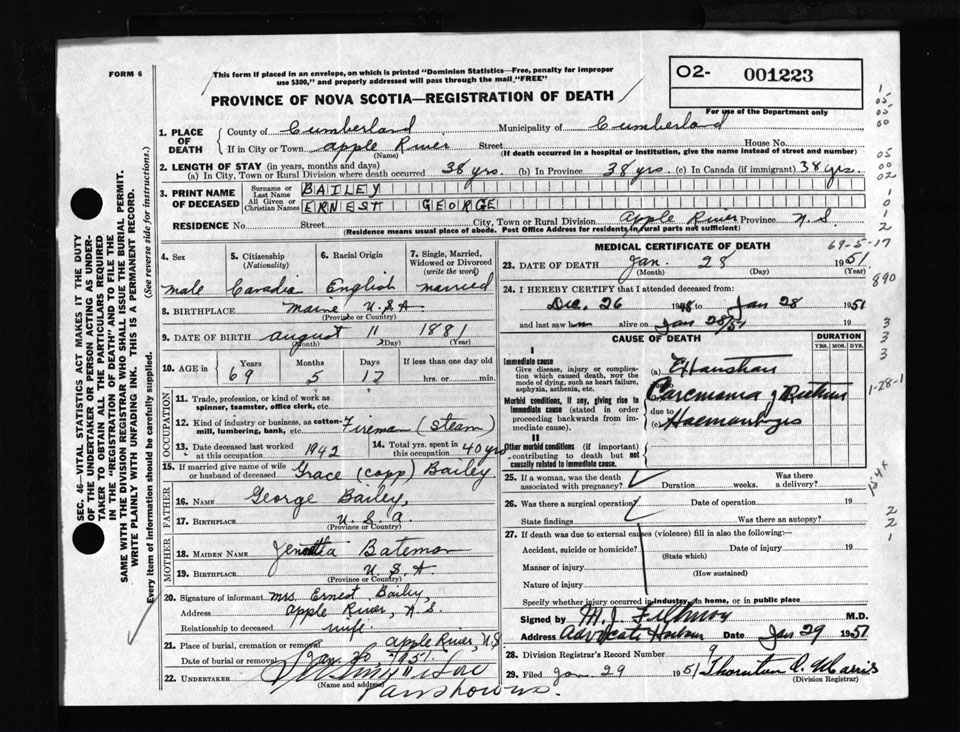 FORM 6
This form if placed in an envelope, on which is printed "Dominion Statistics—Free, penalty for improper
use $300," and properly addressed will pass through the mail, "FREE"
O2- 001223
For use of the Department only
PROVINCE OF NOVA SCOTIA—REGISTRATION OF DEATH
1. PLACE OF DEATH County of Cumberland Municipality of Cumberland
If in City or Town Apple River Street House No.
(Name) (If death occurred in a hospital or institution, give the name instead of street and number)
2. LENGTH OF STAY (in years, months and days)
(a) In City, Town or Rural Division where death occurred 38 yrs. (b) In Province 38 yrs. (c) In Canada (if immigrant) 38 yrs.
3. PRINT NAME OF DECEASED Surname or Last Name BAILEY
All Given or Christian Names ERNEST GEORGE
RESIDENCE No. Street City, Town or Rural Division Apple River Province N.S.
(Residence means usual place of abode. Post Office Address for residents in rural parts not sufficient)
4. Sex 5. Citizenship (Nationality) 6. Racial Origin 7. Single, Married, Widowed or Divorced (write the word)
male Canadia English married
8. BIRTHPLACE Maine U.S.A
(Province or Country)
9. DATE OF BIRTH August 11 1881
(Month) (Day) (Year)
10. AGE in Years Months Days If less than one day old
69 5 17 hrs. or min.
OCCUPATION
11. Trade, profession, or kind of work as
spinner, teamster, office clerk, etc.
12. Kind of industry or business, as cotton-
mill, lumbering, bank, etc. Fireman (steam)
13. Date deceased last worked at this occupation 1942 14. Total yrs. spent in this occupation 40 yrs
15. If married give name of wife or husband of deceased Grace (Copp) Bailey
FATHER
16. NAME George Bailey,
17. BIRTHPLACE U.S.A.
(Province or Country)
MOTHER
18. MAIDEN NAME Bateman
19. BIRTHPLACE U.S.A.
(Province or Country)
20. Signature of informant Mrs. Ernest Bailey,
Address Apple River, N.S.
Relationship to deceased wife.
21. Place of burial, cremation or removal Apple River, N.S
Date of burial or removal Jan. 30 1951
22. UNDERTAKER
(Name and address)
MEDICAL CERTIFICATE OF DEATH
69-5-17
23. DATE OF DEATH Jan. 28 1951
(Month) (Day) (Year)
24. I HEREBY CERTIFY that I attended deceased from:
Dec. 26 1948 to Jan 28 1951
and last saw him alive on Jan 28/51 19
CAUSE OF DEATH DURATION
YRS. MOS. DYS.
I
Immediate cause
Give disease, injury or complication which caused death, not the mode of dying, such as heart failure, asphyxia, asthenia, etc.
(a)
Morbid conditions, if any, giving rise to immediate cause (stated in order proceeding backwards from immediate cause).
(b)
due to
(c) Haemorrhages
II
Other morbid conditions (if important) contributing to death but not causally related to immediate cause.
25. If a woman, was the death associated with pregnancy? Duration weeks. Was there a delivery?
26. Was there a surgical operation? Date of operation 19
State findings Was there an autopsy?
27. If death was due to external causes (violence) fill in also the following:—
Accident, suicide or homicide? Date of injury 19
(State which)
Manner of injury
(How sustained)
Nature of injury
Specify whether injury occurred in industry, in home, or in public place
Signed by M.J. Fillmore M.D.
Address Advocate Harbour Date Jan 29 1951
28. Division Registrar's Record Number 9
29. Filed Jan 29 1951 Thornton A. Morris
(Division Registrar)
SEC. 46—VITAL STATISTICS ACT MAKES IT THE DUTY
OF THE UNDERTAKER OR PERSON ACTING AS UNDER-
TAKER TO OBTAIN ALL THE PARTICULARS REQUIRED
IN THE "REGISTRATION OF DEATH" AND TO FILE THE
SAME WITH THE DIVISION REGISTRAR WHO SHALL ISSUE THE BURIAL PERMIT.
WRITE PLAINLY WITH UNFADING INK. THIS IS A PERMANENT RECORD.
Every item of information should be carefully supplied. (See reverse side for instructions.)
1
05
05
00
05
00
02
1
0
1
2
890
3
3
3
1-28-1
2
2
1